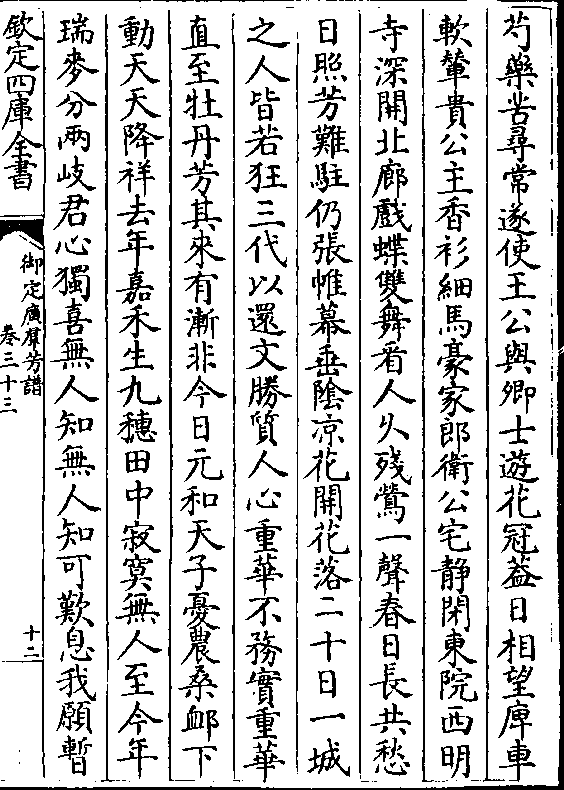 芍藥苦尋常遂使王公與卿士遊花冠葢日相望庳車
軟轝貴公主香衫細馬豪家郎衛公宅静閉東院西明
寺深開北廊戲蝶雙舞看人久殘鶯一聲春日長共愁
日照芳難駐仍張帷幕垂陰凉花開花落二十日一城
之人皆若狂三代以還文勝質人心重華不務實重華
直至牡丹芳其來有漸非今日元和天子憂農桑卹下
動天天降祥去年嘉禾生九穗田中寂寞無人至今年
瑞麥分兩岐君心獨喜無人知無人知可歎息我願暫
欽定四庫全書
御定廣羣芳譜
卷三十三
十二